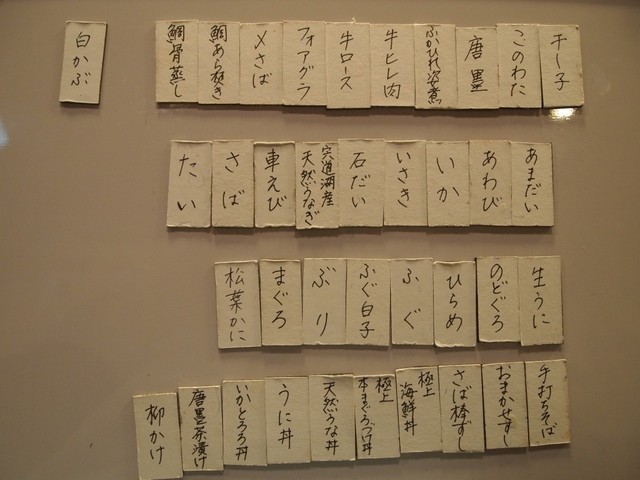 干し子
このわた
唐墨
ふかひれ姿煮
牛ヒレ肉
牛ロース
フォアグラ
〆さば
鯛あら焚き
鯛骨蒸し
白かぶ
あまだい
あわび
いか
いさき
石だい
宍道湖産
天然うなぎ
車えび
さば
たい
生うに
のどぐろ
ひらめ
ふぐ
ふぐ白子
ぶり
まぐろ
松葉かに
手打ちそば
おまかせずし
さば棒ずし
極上
海鮮丼
極上
本まぐろづけ丼
天然うな丼
うに丼
いかとろろ丼
唐墨茶漬け
柳かけ